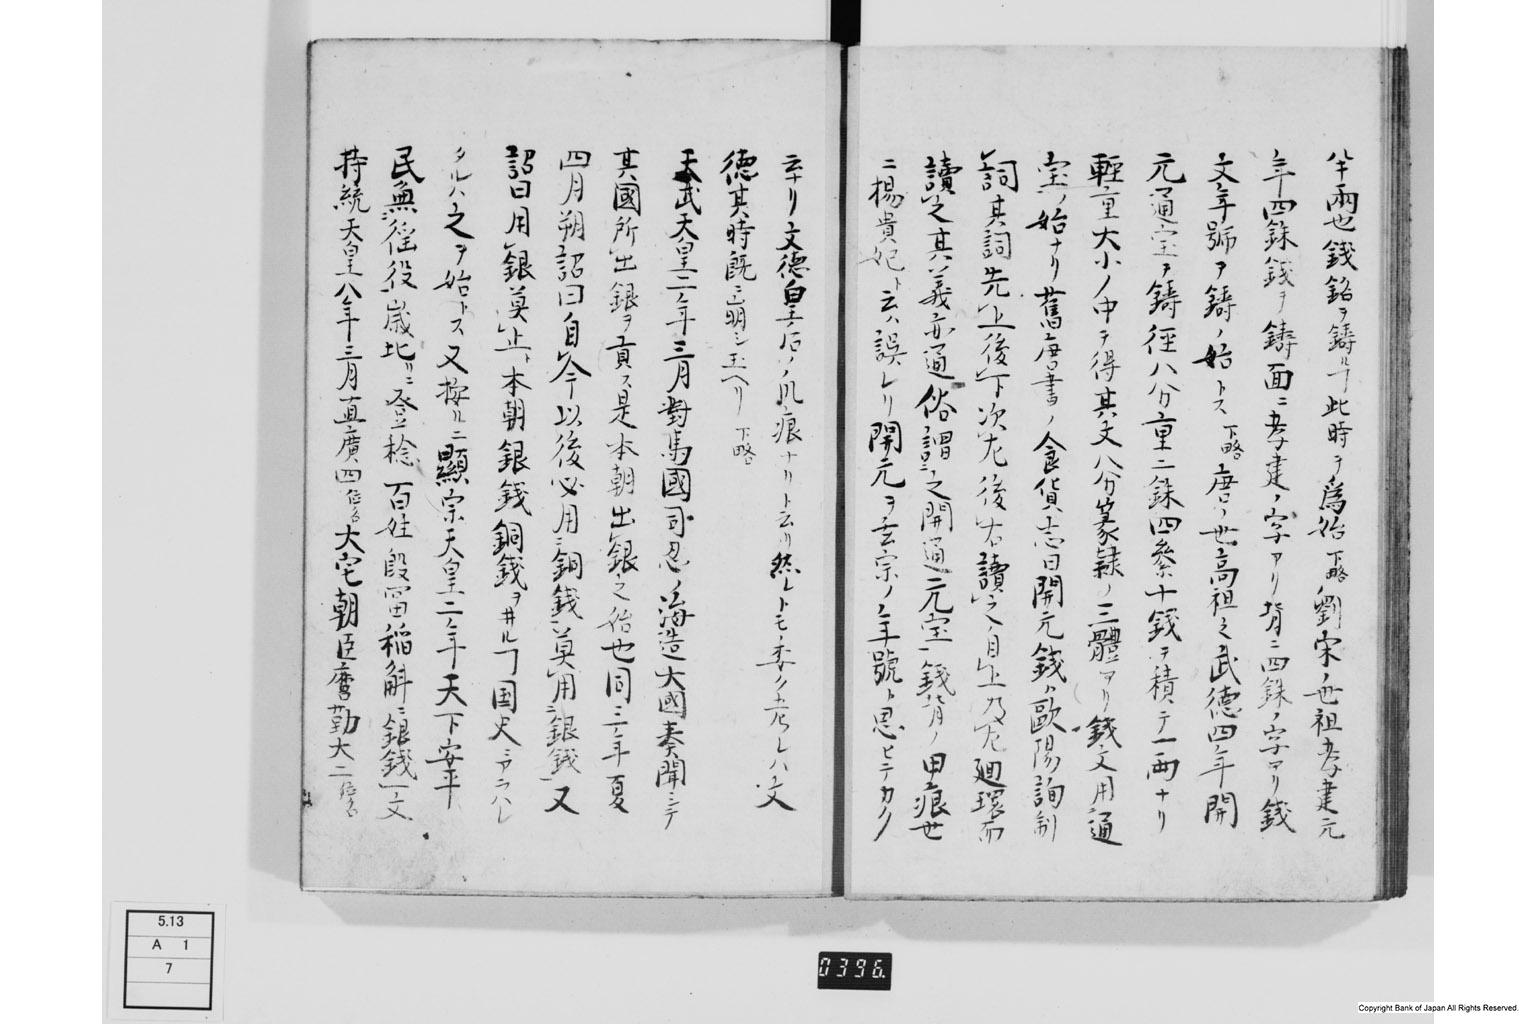 半兩也錢銘ヲ鋳ルヿ此時ヲ爲始下略劉宋ノ世祖孝建元
年四銖錢ヲ鋳面ニ孝建ノ字アリ背ニ四銖ノ字アリ錢
文年號ヲ鋳ノ始トス下略唐ノ世高祖之武德四年開
元通宝ヲ鋳径八分重二銖四參十錢ヲ積テ一兩ナリ
輕重大小ノ中ヲ得其文八分篆隷ノ三體アリ錢文用通
宝ノ始ナリ舊唐書ノ食貨志曰開元錢ハ歐陽詢制
詞其詞先上後下次左後右讀之自上及左廻環而
讀之其義亦通俗謂之開通元宝一錢背ノ甲痕世
ニ楊貴妃ト云ハ誤レリ開元ヲ玄宗ノ年號ト思ヒテカク
云ナリ文德皇后ノ爪痕ナリト云リ然レトモ委ク考レハ文
德其時既ニ崩シ玉ヘリ下略
天武天皇二年三月對馬國司忍ノ海造大國奏聞シテ
其國所出銀ヲ貢ス是本朝出銀之始也同三年夏
四月朔詔曰自今以後必用ニ銅錢一莫用ニ銀錢一又
詔曰用銀莫止ト本朝銀錢銅錢ヲ用ルヿ国史ニアラハレ
タルハ之ヲ始トス又按ルニ顯宗天皇二年天下安平
民無徭役歳比リニ登稔百姓殷冨稲斛ニ銀錢一文
持統天皇八年三月直廣四位名大宅朝臣麿勤大二位名
5.13
A 1
7
0396.
Copyright Bank of Japan All Rights Reserved.